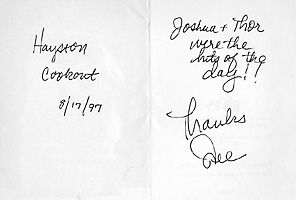 Hayston
Cookout
8/17/97
Joshua + Thor
were the
hits of the
day!!
Thanks
Dee